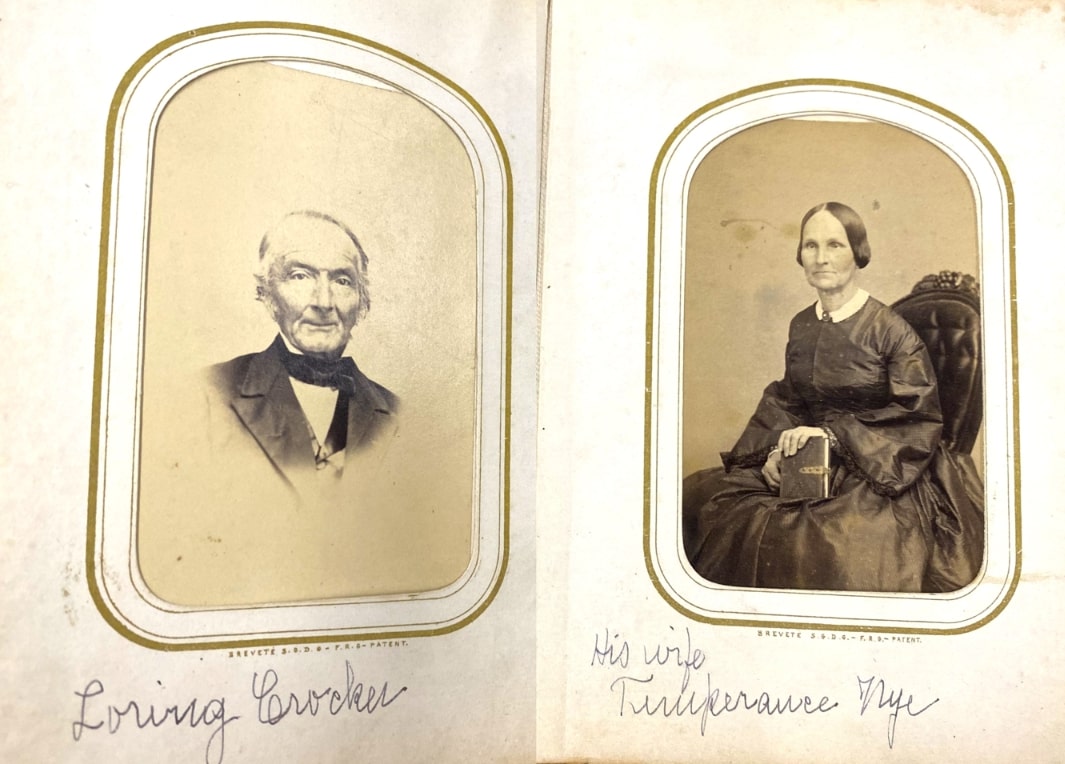 BREVETE S.G.D.G - F.R.G - PATENT.
Loring Crocker
BREVETE S.G.D.G. - F.R.G. - PATENT.
His wife
Temperance Nye